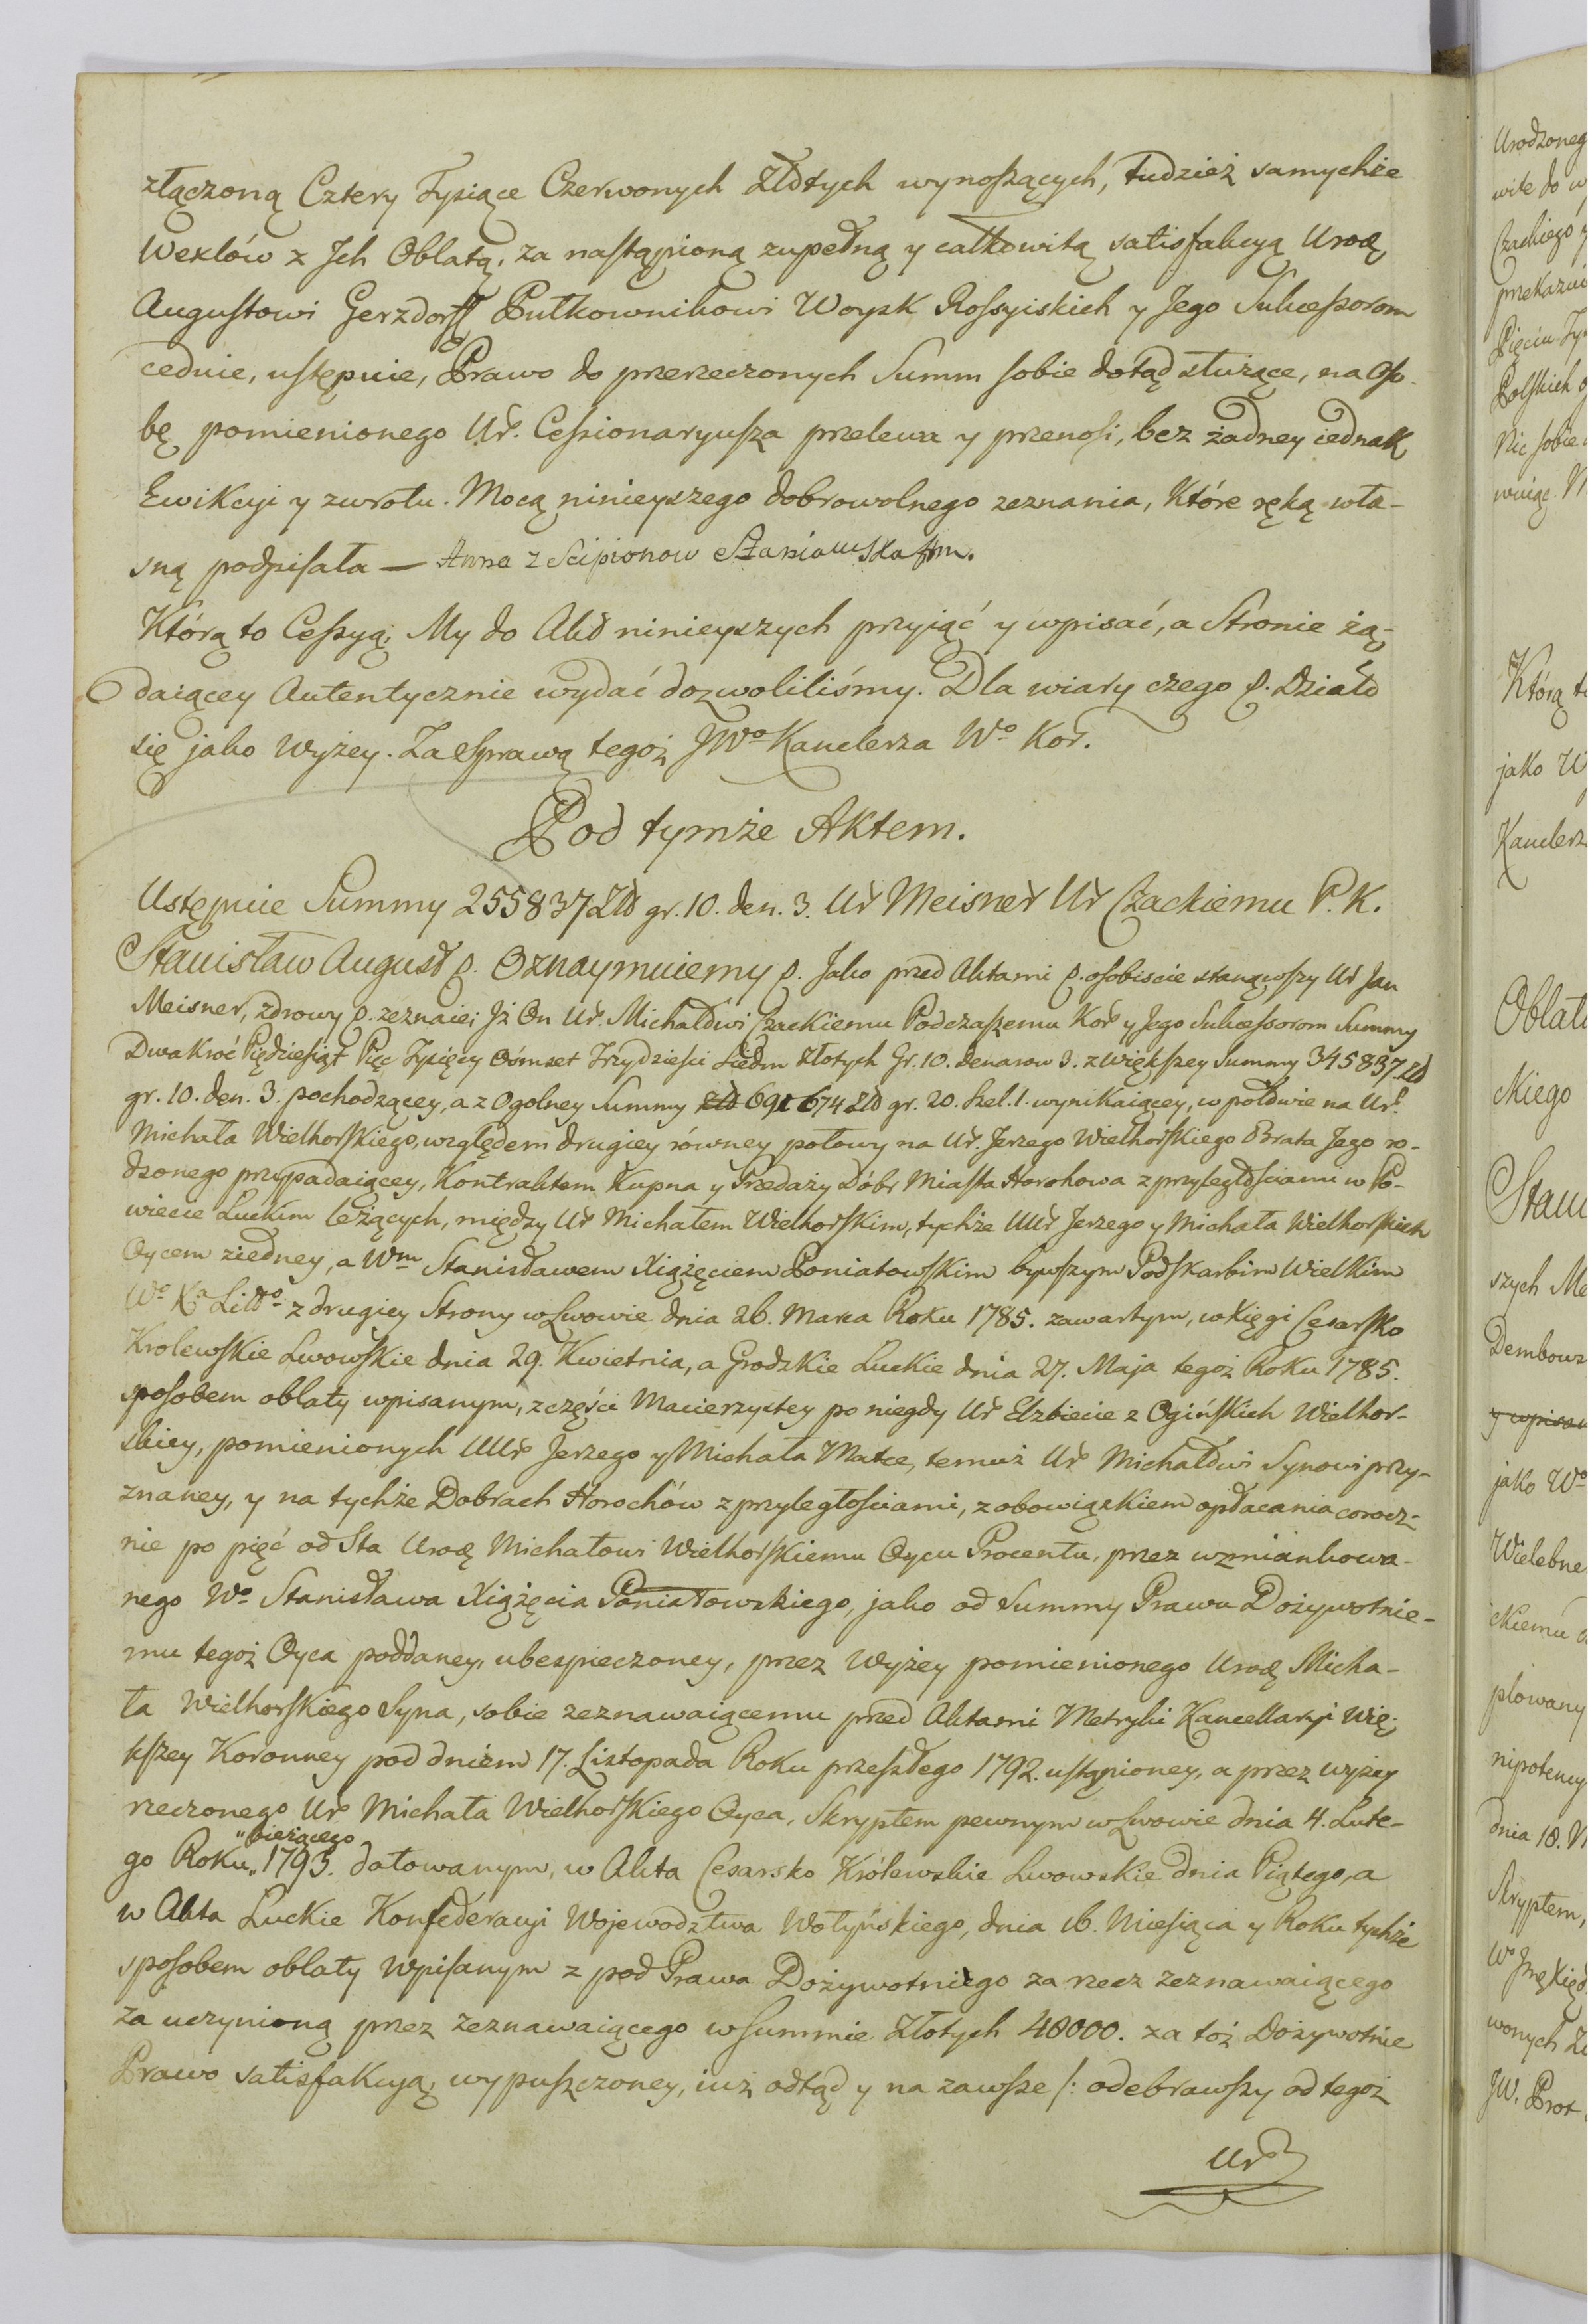 złączoną Cztery Tysiące Czerwonych Złotych wynoszących, tudzież samychże
Wexlów z Jch Oblatą, za nastąpioną zupełną y całkowitą satisfakcyą Urodz
Augustowi Gerzdorff Pułkownikowi Woysk Rossyiskich y Jego Sukcessorom
ceduie, ustępuie, Prawo do przerzeczonych Summ sobie dotąd służące, na Oso-
bę pomienionego Ur. Cessionaryusza przelewa y przenosi, bez żadney iednak
Ewikcyi y zwrotu. Mocą ninieyszego dobrowolnego zeznania, Które ręką wła-
sną podpisała — Anna z Scipionow Szaniawska
Którą to Cessyą, My do Akt ninieyszych przyiąć y wpisać, a Stronie żą-
daiącey Autentycznie wydać dozwoliliśmy. Dla wiary czego p. Działo
się jako Wyżey. Za Sprawą tegoż JWo Kanclerza Wo Kor.
Pod tymże Aktem.
Ustępuie Summy 255837 Złł gr. 10. den. 3. Ur Meisner Ur Czackiemu P. K.
Stanisław August p. Oznaymuiemy p. Jako przed Aktami p. osobiscie stanąwszy Ur Jan
Meisner, zdrowy p. zeznaie; Jż On Ur. Michałowi Czackiemu Podczaszemu Kor y Jego Sukcessorom Summy
Dwakroć Pięćdziesiąt Pięć Tysięcy Ośmset Trzydzieści Siedm Złotych Gr. 10. denarow 3. z większey Summy 345837 Złł
gr. 10. den. 3. pochodzącey, a z Ogolney Summy Złł 691674 Złł gr. 20. Szel. 1. wynikaiącey, w połowie na Ur.
Michała Wielhorskiego, względem drugiey równey połowy na Ur. Jerzego Wielhorskiego Brata Jego ro-
dzonego przypadaiącey, Kontraktem Kupna y Przedaży Dóbr Miasta Horohowa z przyległościami w Po-
wiecie Łuckim leżących, między Ur Michałem Wielhorskim, tychże UUr Jerzego y Michała Wielhorskich
Oycem z iedney, a Wm Stanisławem Xiążęciem Poniatowskim bywszym Podskarbim Wielkim
Wo Xa Litto z drugiey Strony w Lwowie dnia 26. Marca Roku 1785. zawartym, w Xięgi Cesarsko
Krolewskie Lwowskie dnia 29. Kwietnia, a Grodzkie Łuckie dnia 27. Maja tegoż Roku 1785.
sposobem oblaty wpisanym, z części Macierzystey po niegdy Ur Elżbiecie z Ogińskich Wielhor-
skiey, pomienionych UUr Jerzego y Michała Matce, temuż Ur Michałowi Synowi przy-
znaney, y na tychże Dobrach Horochów z przyległościami, z obowiązkiem opłacania corocz-
nie po pięć od Sta Urodz Michałowi Wielhorskiemu Oycu Procentu, przez wzmiankowa-
nego Wo Stanisława Xiążęcia Poniatowskiego, jako od Summy Prawu Dożywotnie-
mu tegoż Oyca poddaney, ubezpieczoney, przez Wyżey pomienionego Urodz Micha-
ła Wielhorskiego Syna, sobie zeznawaiącemu przed Aktami Metryki Kancellaryi Wię-
kszey Koronney pod dniem 17. Listopada Roku przeszłego 1792. ustąpioney, a przez wyżey
rzeczonego Ur Michała Wielhorskiego Oyca, Skryptem pewnym w Lwowie dnia 4. Lute-
"bieżącego
go Roku "1793. datowanym, w Akta Cesarsko Królewskie Lwowskie dnia Piątego, a
w Akta Łuckie Konfederacyi Wojewodztwa Wołyńskiego, dnia 16. Miesiąca y Roku tychże
sposobem oblaty wpisanym z pod Prawa Dożywotniego za rzecz zeznawaiącego
za uczynioną przez zeznawaiącego w Summie Złotych 40000. za toż Dożywotnie
Prawo satisfakcyą, wypuszczoney, iuż odtąd y na zawsze /: odebrawszy od tegoż
Ur
Urodzoneg
wite do w
Czackiego y
przekazuie
Pięciu Ty
Polskich
Nic sobie
Którą t
jako W
Kanclerz
Oblat
ckiego
Stani
szych Me
Dembows
y wpisan
jako Wo
Wielebne
ckiemu
plowany
nipotency
dnia 18. N
Skryptem,
wonych Z
JW. Prot